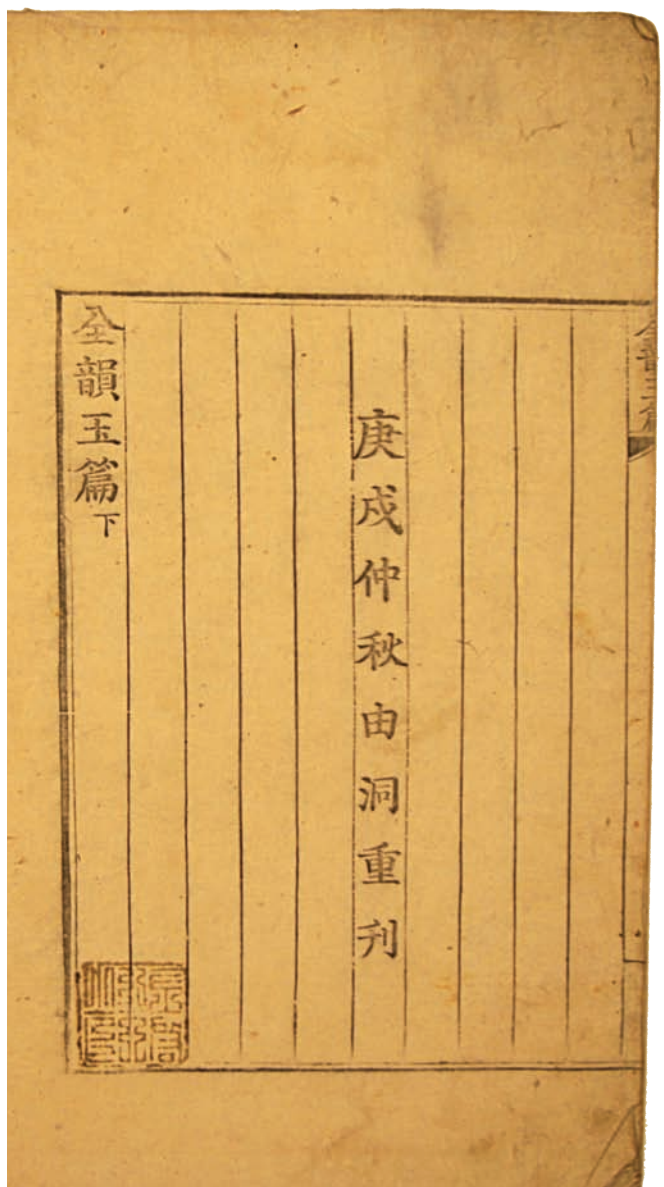 全韻玉篇
庚戌仲秋由洞重刋
全韻玉篇下